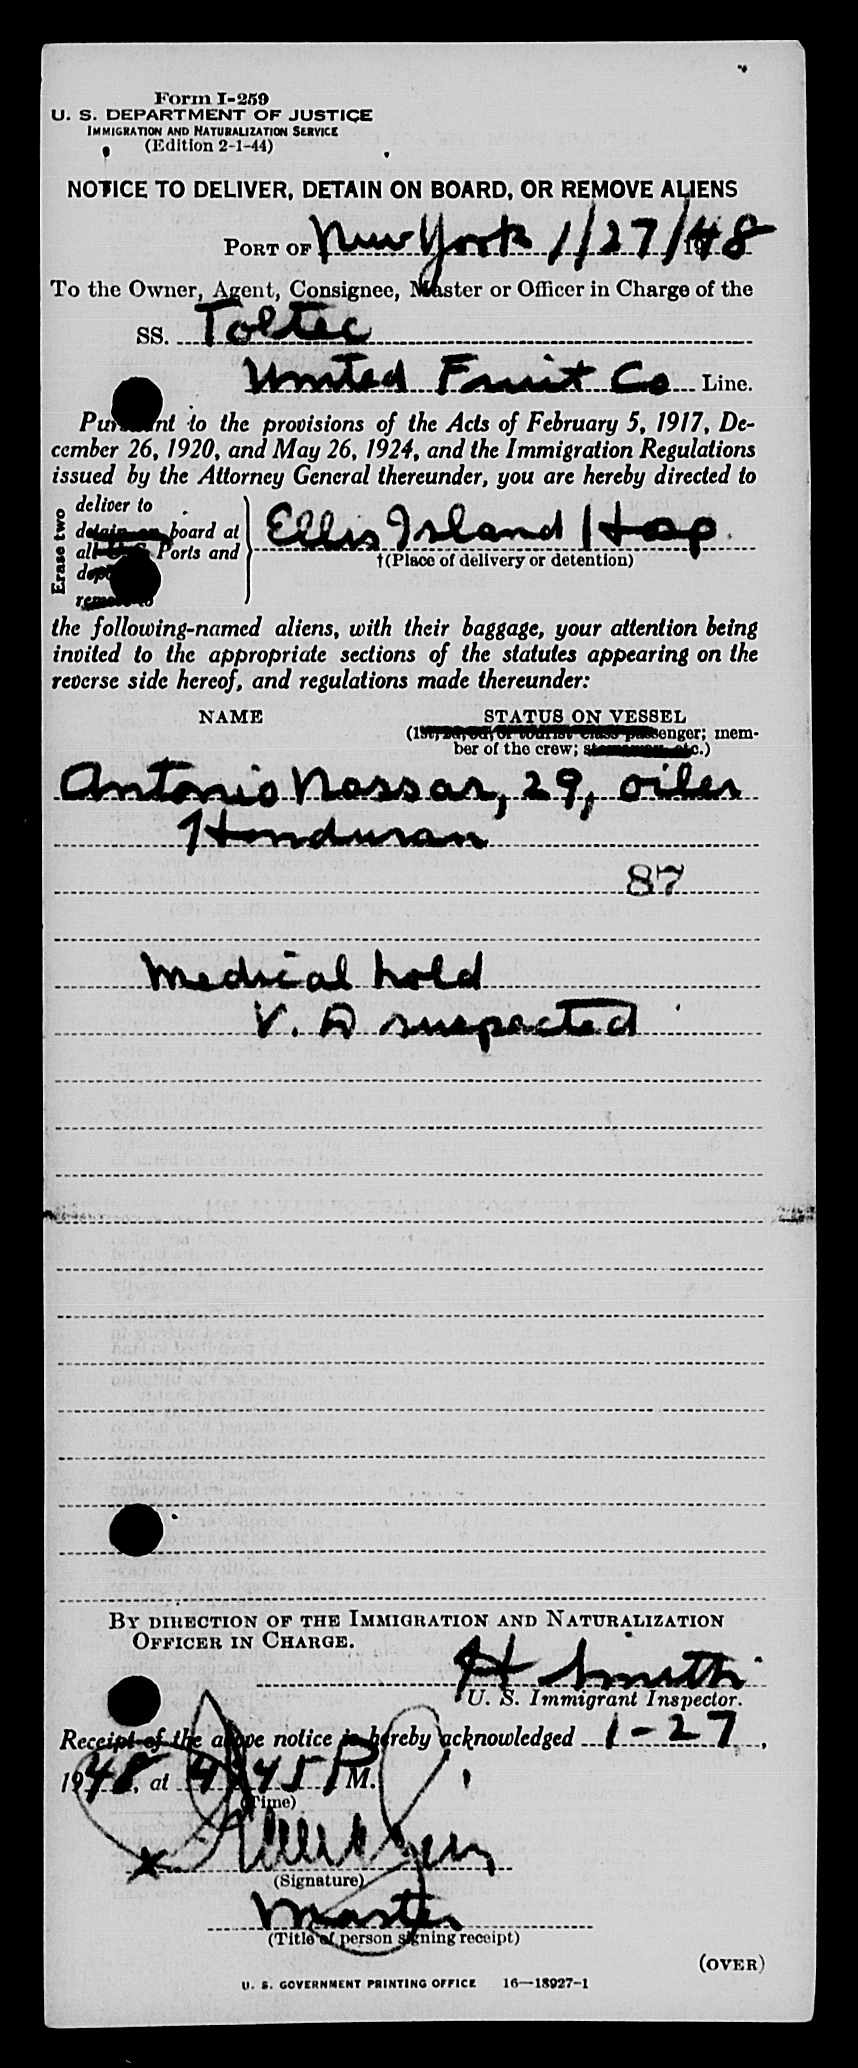 Form I-259
U. S. DEPARTMENT OF JUSTICE
IMMIGRATION AND NATURALIZATION SERVICE
(Edition 2-1-44)
NOTICE TO DELIVER, DETAIN ON BOARD, OR REMOVE ALIENS
PORT OF New York 1/27/1948
To the Owner, Agent, Consignee, Master or Officer in Charge of the
SS. Toltec
United Fruit Co Line.
Pursuant to the provisions of the Acts of February 5, 1917, De-
cember 26, 1920, and May 26, 1924, and the Immigration Regulations
issued by the Attorney General thereunder, you are hereby directed to
Erase two
deliver to
detain on board at
all U.S. Ports and
remove to
Ellis Island Hosp.
†(Place of delivery or detention)
the following-named aliens, with their baggage, your attention being
invited to the appropriate sections of the statutes appearing on the
reverse side hereof, and regulations made thereunder:
NAME STATUS ON VESSEL
(1st, 2d, 3d, or tourist class passenger; mem-
ber of the crew; stowaway, etc.)
Antonio Nassar, 29, oiler
Honduran
87
Medical hold
V. D suspected
BY DIRECTION OF THE IMMIGRATION AND NATURALIZATION
OFFICER IN CHARGE.
H Smith
U. S. Immigrant Inspector.
Receipt of the above notice is hereby acknowledged 1-27,
1948, at 4:45 P M.
(Time)
(Signature)
Master
(Title of person signing receipt)
(OVER)
U. S. GOVERNMENT PRINTING OFFICE 16—18927-1